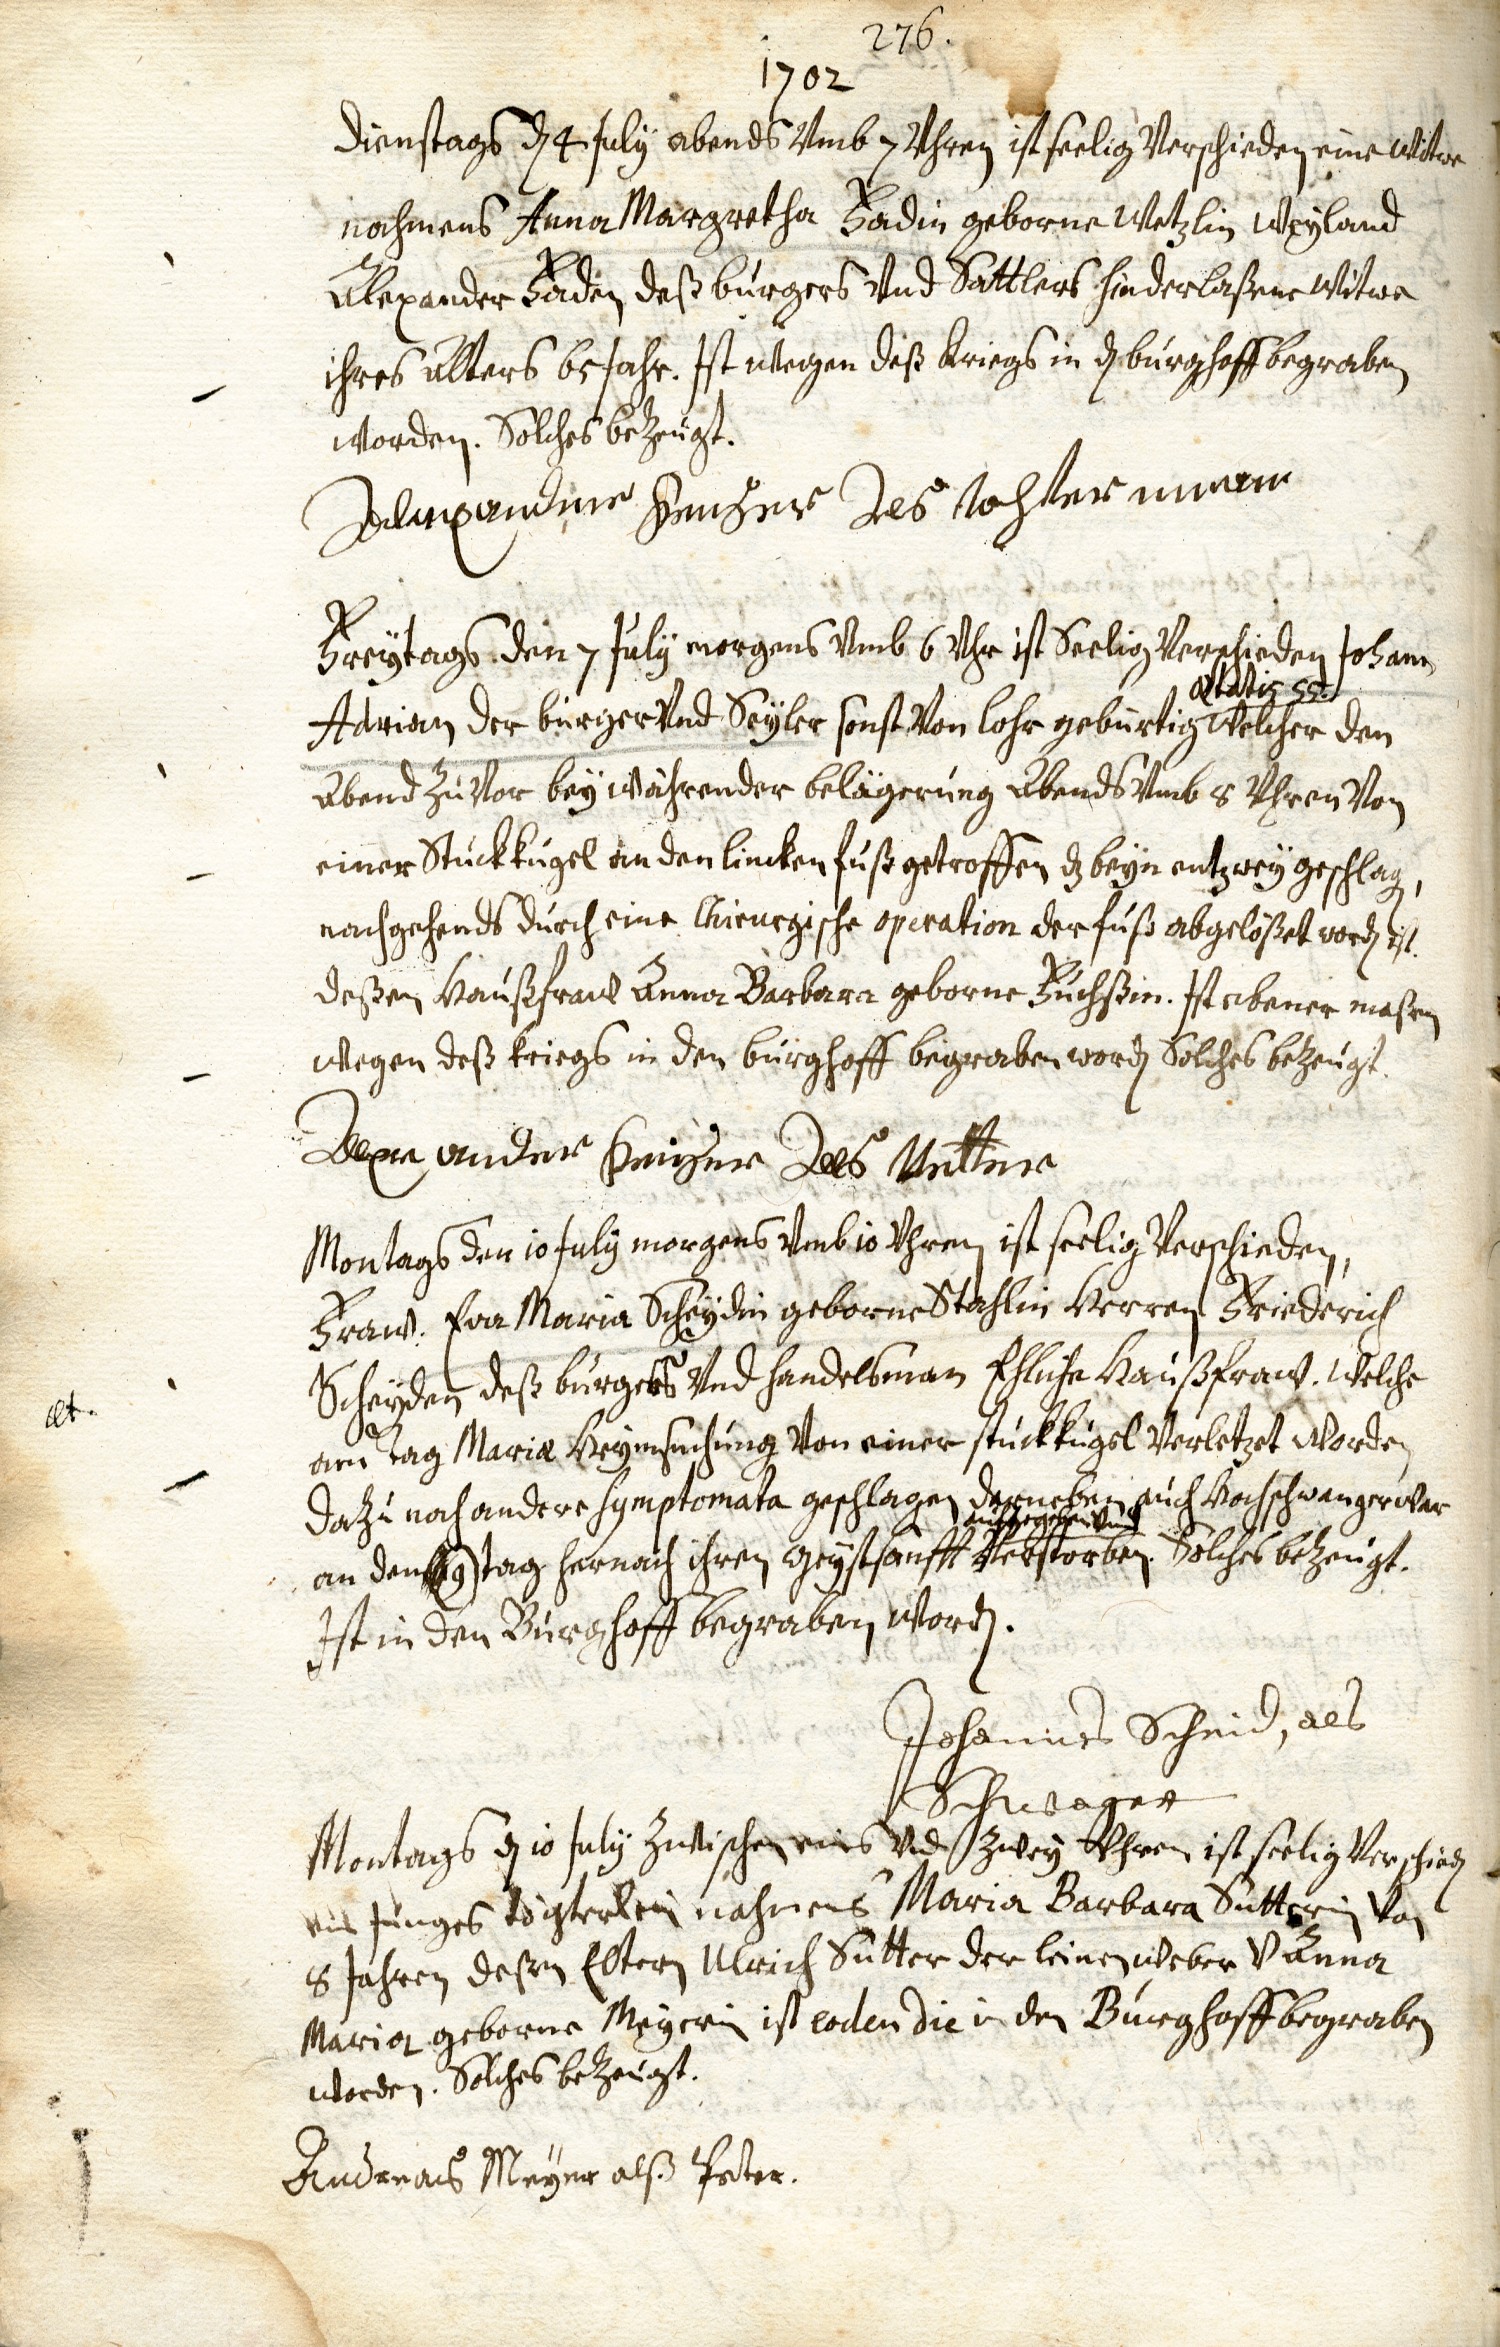 276.
1702
Dienstags d 4 July abends Vmb 7 Vhren ist seelig Verschieden eine Witwe
nahmens Anna Margretha Fadin geborne Wetzlin Weyland
Alexander Faden deß burgers Vnd Sattlers hinderlaßene Witwe
ihres Alters 65 Jahr. Ist wegen deß Kriegs in d burghoff begraben
worden. Solches bezeugt.
als tochterman
Freytags den 7 July morgens Vmb 6 Vhr ist Seelig Verschieden Johann
ætatis 55.
Adrian der burger Vnd Seyler sonst Von lohr geburtig Welcher den
Abend zuvor bey währender belägerung Abends Vmb 8 Vhren Von
einer Stuckkugel an den lincken fuß getroffen dz beyn entzwey geschlag,
nachgehends durch eine Chirurgische operation der fuß abgelößet word ist.
deßen Haußfraw Anna Barbara geborne Fuchßin. Ist ebener maßen
wegen deß kriegs in den burghoff begraben word Solches bezeugt.
Alexander als Vetter
Montags den 10 July morgens Vmb 10 Vhren ist seelig Verschieden,
Fraw. Eva Maria Scheydin geborne Stahlin Herren Friederich
Scheyden deß burgers Vnd handelsman Ehliche Haußfraw. Welche
æt.
am tag Mariæ Heymsuchung Von einer stuckkugel Verletzet Worden
dazu noch andere symptomata geschlagen darneben auch Hochschwanger war
auffgegeben Vnd
an den 9 tag hernach ihren Geyst sanfft Verstorben. Solches bezeugt.
Ist in den Burghoff begraben Word.
Johannes Scheid, als
Schwager
Montags d 10 July zwischen eins Vnd zwey Vhren ist seelig Verschied
ein junges töchterlein nahmens Maria Barbara Sutterin Von
8 Jahren deßen Eltern Ulrich Sutter der leinenweber V Anna
Maria geborne Meyerin ist eodem die in den Burghoff begraben
worden. Solches bezeugt.
Andreas Meyer alß Peter.